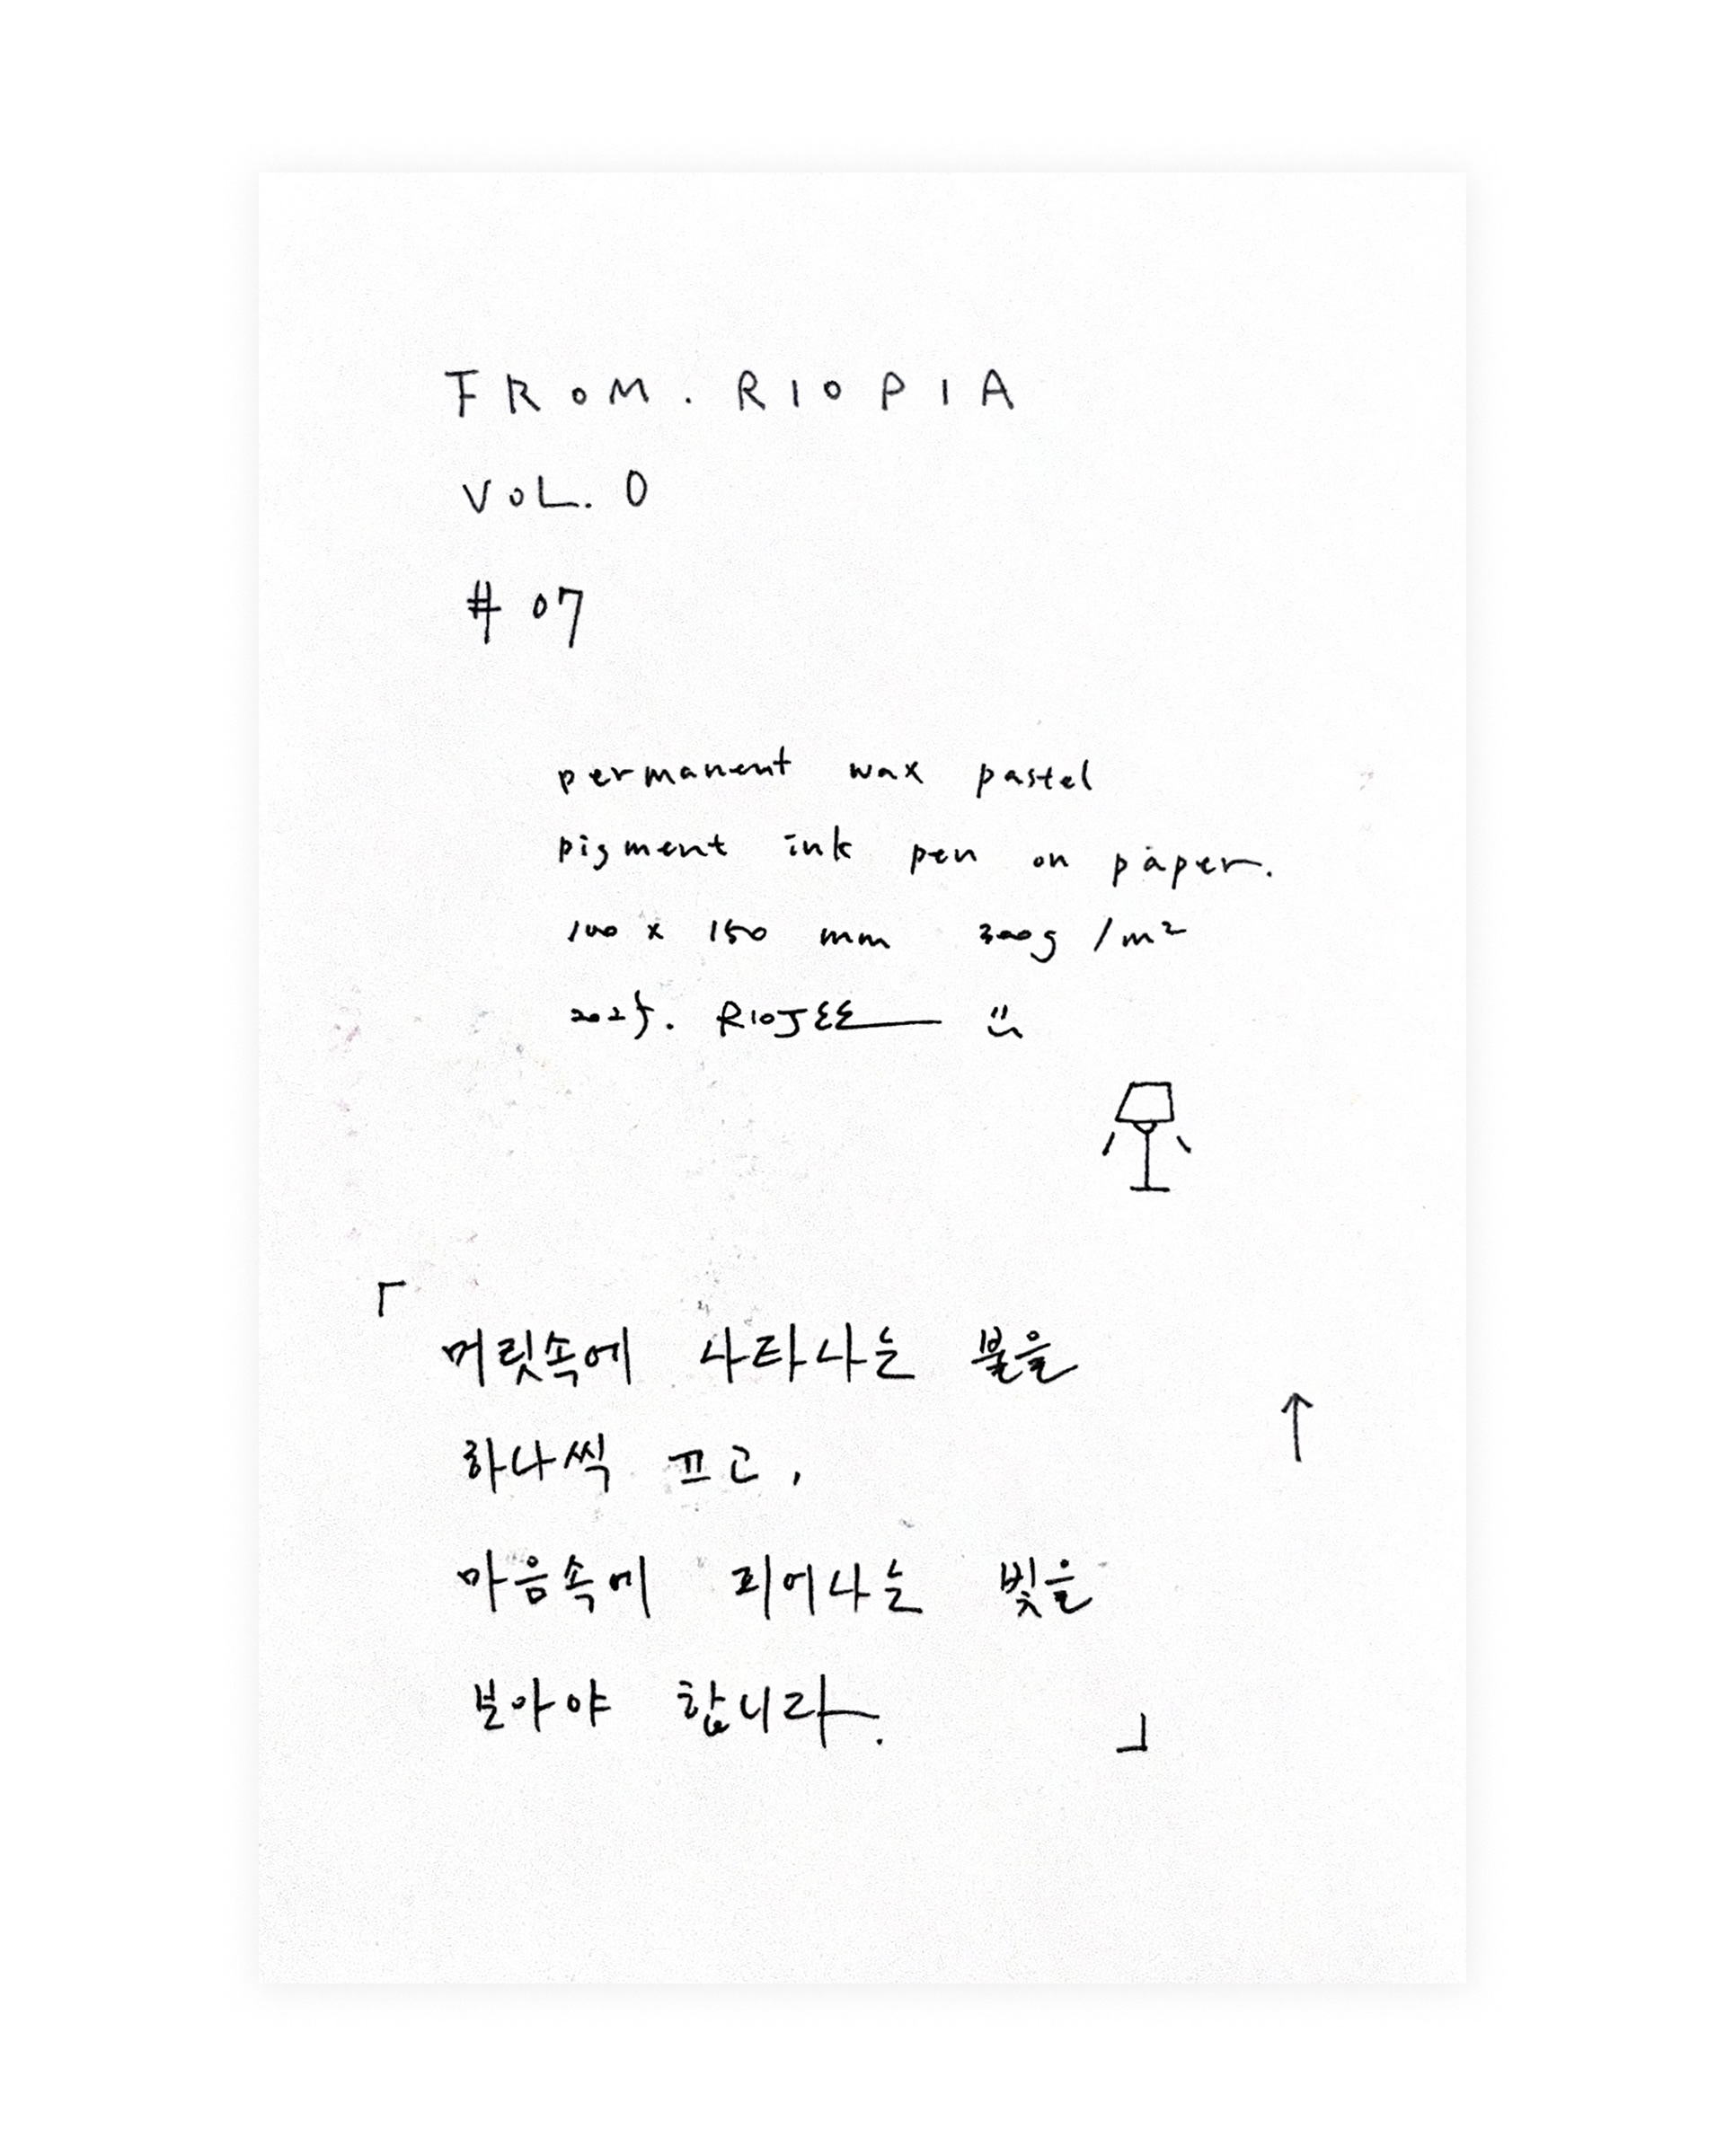 FROM. RIOPIA
VOL. 0
# 07
permanent wax pastel
pigment ink pen on paper.
100 x 150 mm 300g /m²
2025. RIOJEE
「
머릿속에 나타나는 불을
하나씩 끄고,
마음속에 피어나는 빛을
보아야 합니다.
」